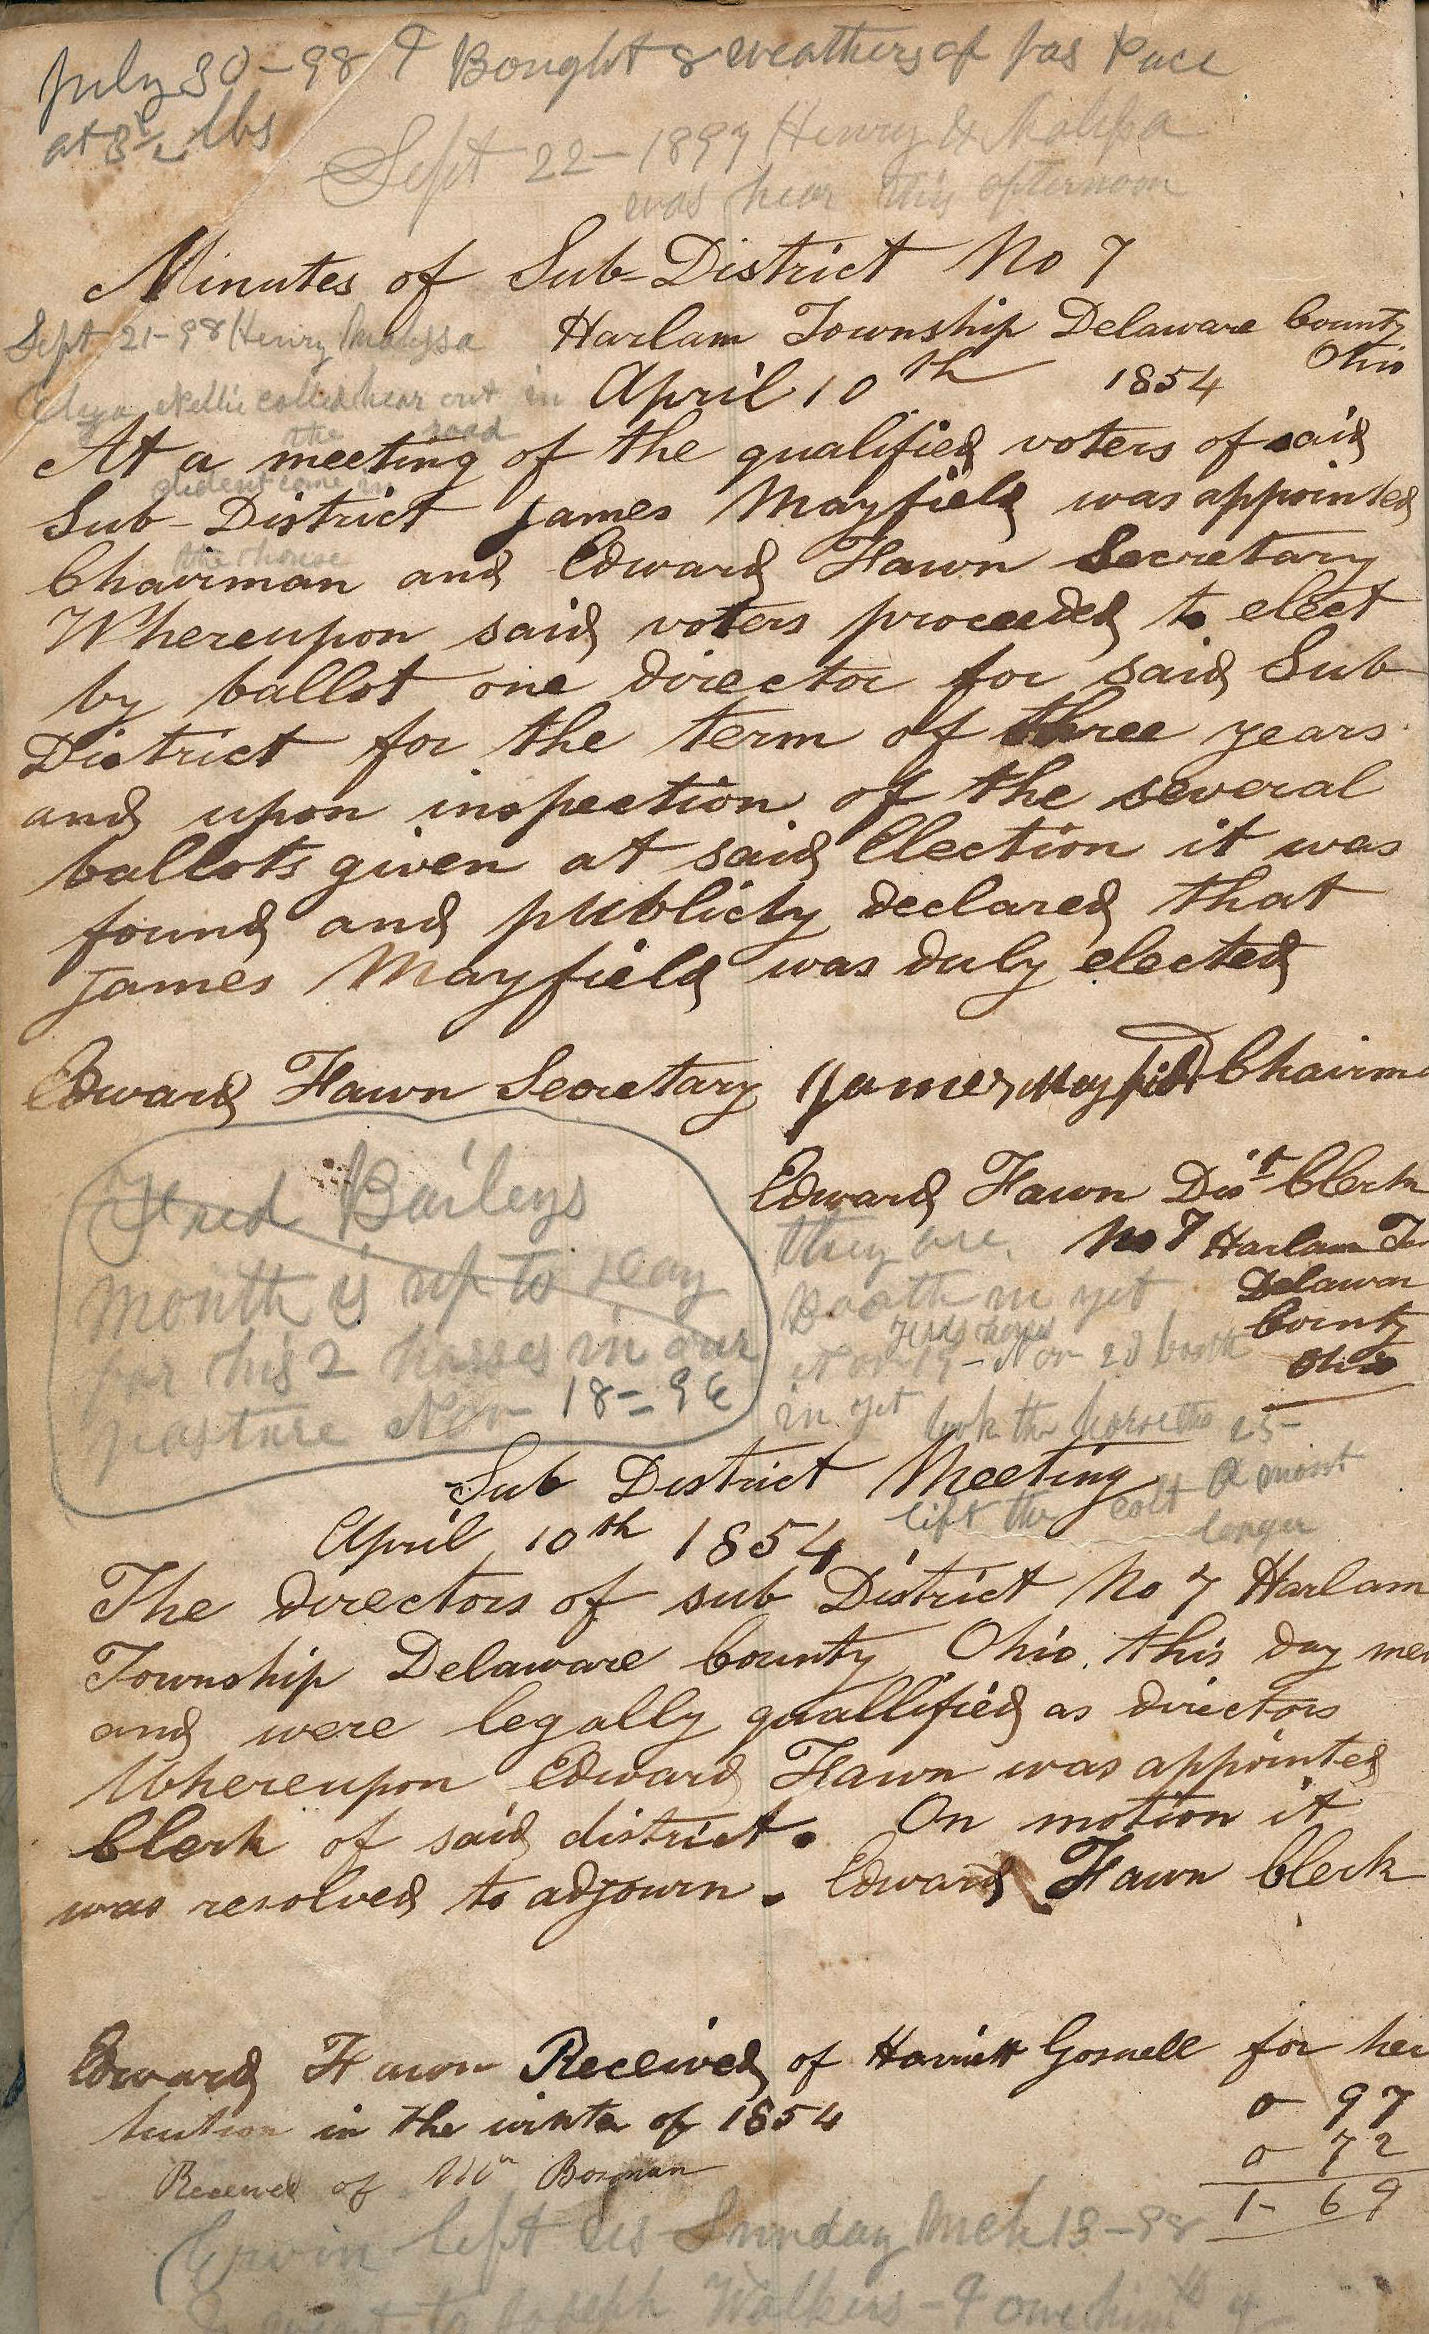 July 30-98 I Bought 8 weathers of Jas
at 3½ lbs
Sept 22-1897 Henry & Malissa
was hear this afternoon
Minutes of Sub-District No 7
Sept 21-98 Henry Malyssa
Harlam Township Delaware County
Ohio
Nellie called hear out in
the road
April 10th 1854
At a meeting of the qualified voters of said
did ent come in
Sub-District James Mayfield was appointed
the house
Chairman and Edward Hawn Secretary
Whereupon said voters proceeded to elect
by ballot one director for said Sub
District for the term of three years
and upon inspection of the several
ballots given at said Election it was
found and publicly declared that
James Mayfield was duly elected
Edward Hawn Secretary James Mayfield Chairm
Fred Baileys
month is up to day
for his 2 horses in our
pasture Nov 18-98
Edward Hawn Dist Clerk
No 7 Harlam T
Delawar
County
Ohio
they are
booth in yet
Nov 19-Nov 20 booth
in yet
took the horse the 25-
left the colt a mont
longer
Sub District Meeting
April 10th 1854
The directors of sub District No 7 Harlam
Township Delaware County Ohio this day met
and were legally quallified as directors
Whereupon Edward Hawn was appointed
Clerk of said district. On motion it
was resolved to adjourn. Edward Hawn Clerk
Edward Hawn Received of Harriett Gosnell for her
tuition in the winter of 1854
0 97
Received of Wm Bosman
0 72
1- 69
Ervin left us Sunday Mch 13-98
went to Joseph Walkers - I owe him